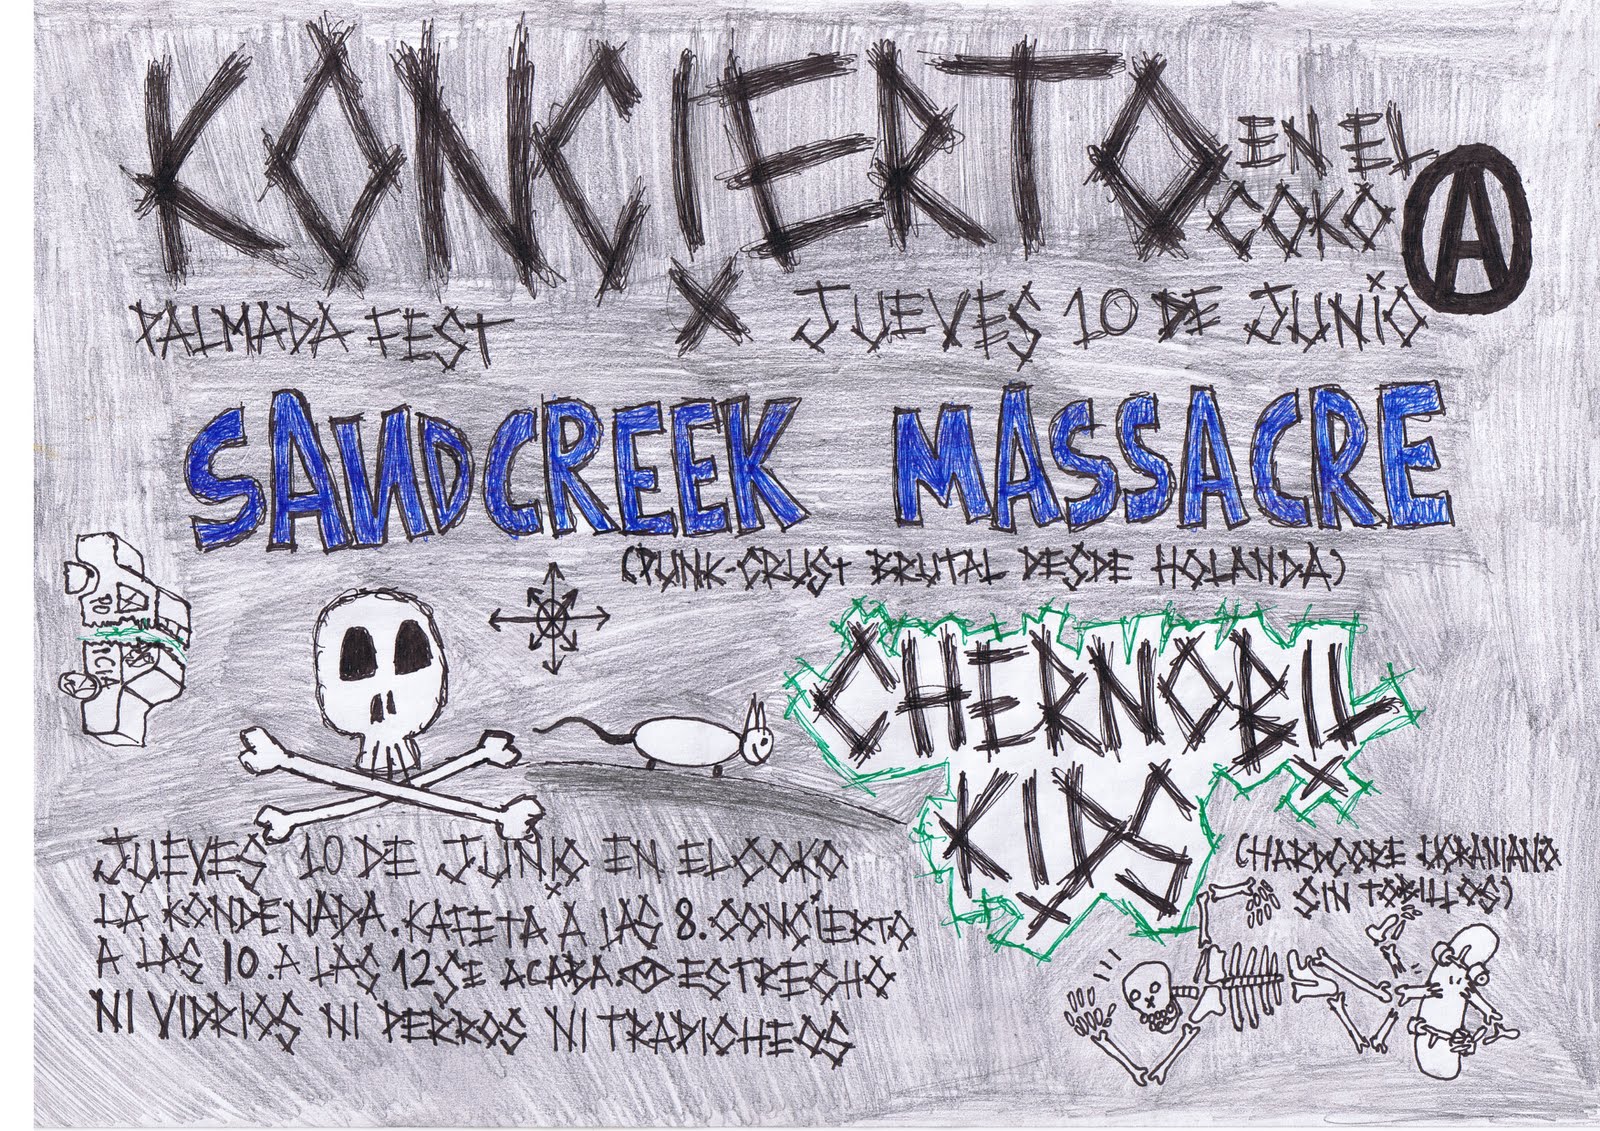 KONCIERTO
EN EL
COKO
A
PALMADA FEST
JUEVES 10 DE JUNIO
SANDCREEK MASSACRE
(PUNK-CRUST BRUTAL DESDE HOLANDA)
PO
CIA
CHERNOBIL
KIDS
(HARDCORE UKRANIANO
SIN TOBILLOS)
JUEVES 10 DE JUNIO EN EL COKO
LA KONDENADA. KAFETA A LAS 8. CONCIERTO
A LAS 10. A LAS 12 SE ACABA. ESTRECHO
NI VIDRIOS NI PERROS NI TRAPICHEOS